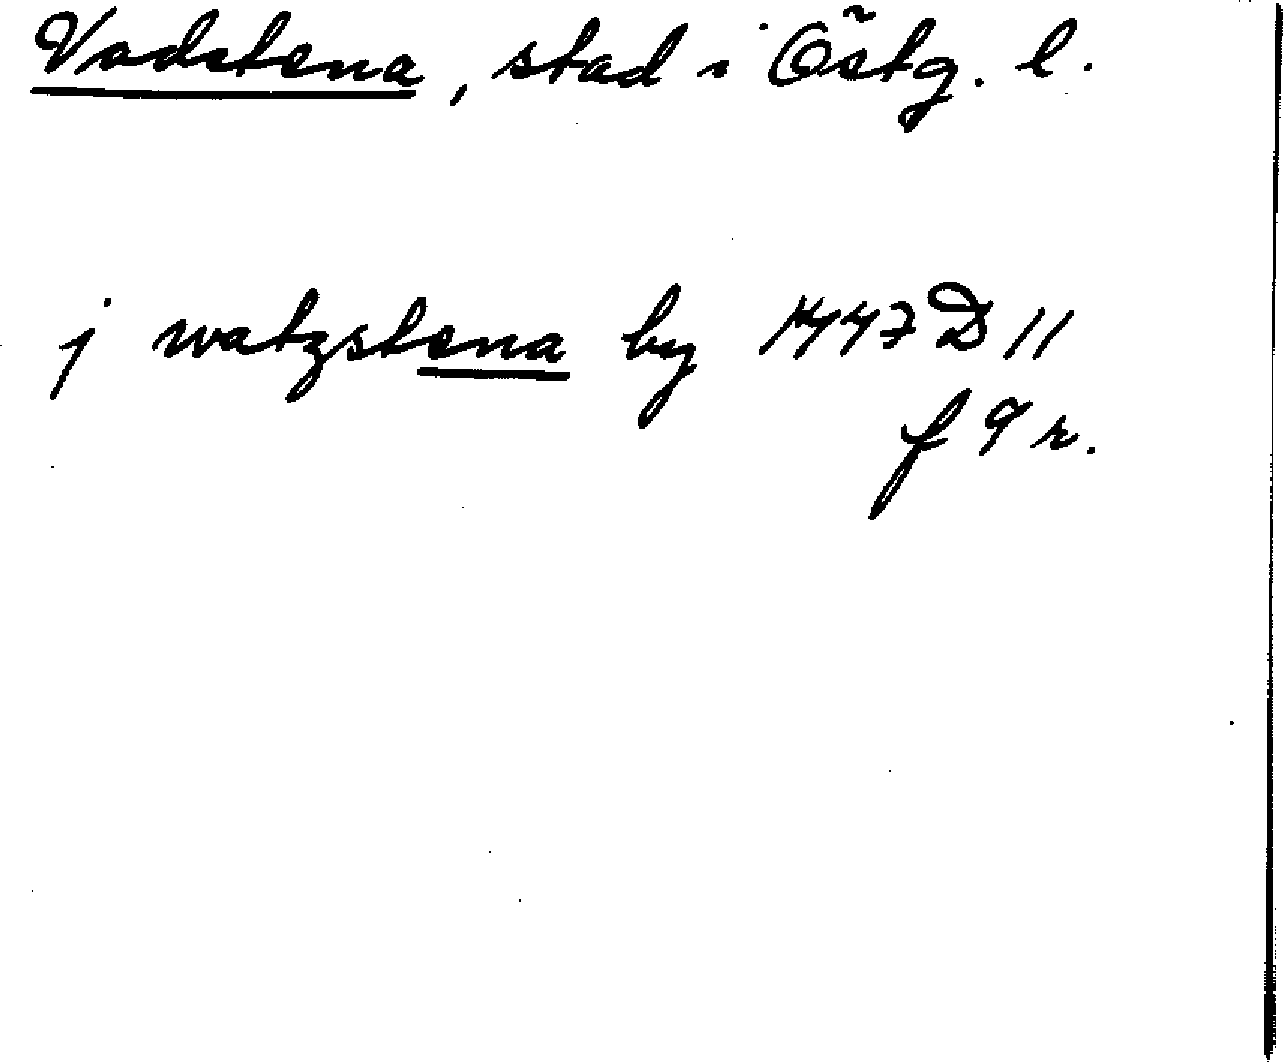 Vadstena, stad i Östg. l.
j watzstena by 1447 D 11
f 9 r.